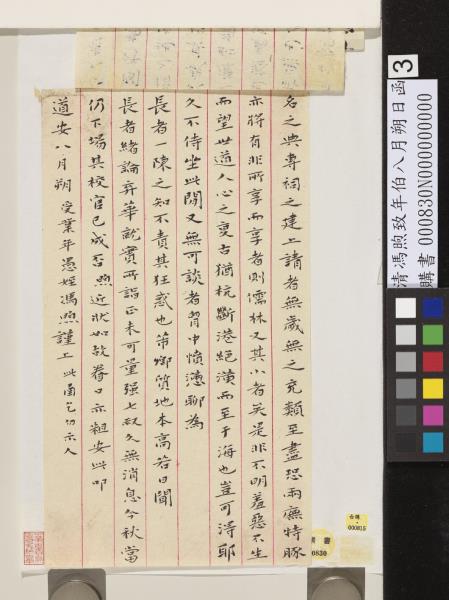 名之典專祠之建上請者無歲無之充類至盡恐兩廡特豚
亦將有非所享而享者則儒林又其小者矣是非不明羞惡不生
而望世道人心之夏古猶杭斷港絕潢而至于海也豈可得耶
久不侍坐此間又無可談者胷中憤懣聊為
長者一陳之知不責其狂惑也第鄉質地本高若日聞
長者緒論弃華就實所詣正未可量強七叔久無消息今秋當
仍下場其校官已成否煦近狀如故眷口亦粗安此叩
道安八月朔 受業年愚姪馮煦謹上 此函乞勿示人
清馮煦致年伯八月朔日函
購書 000830N000000000
3
000815
購書
000830